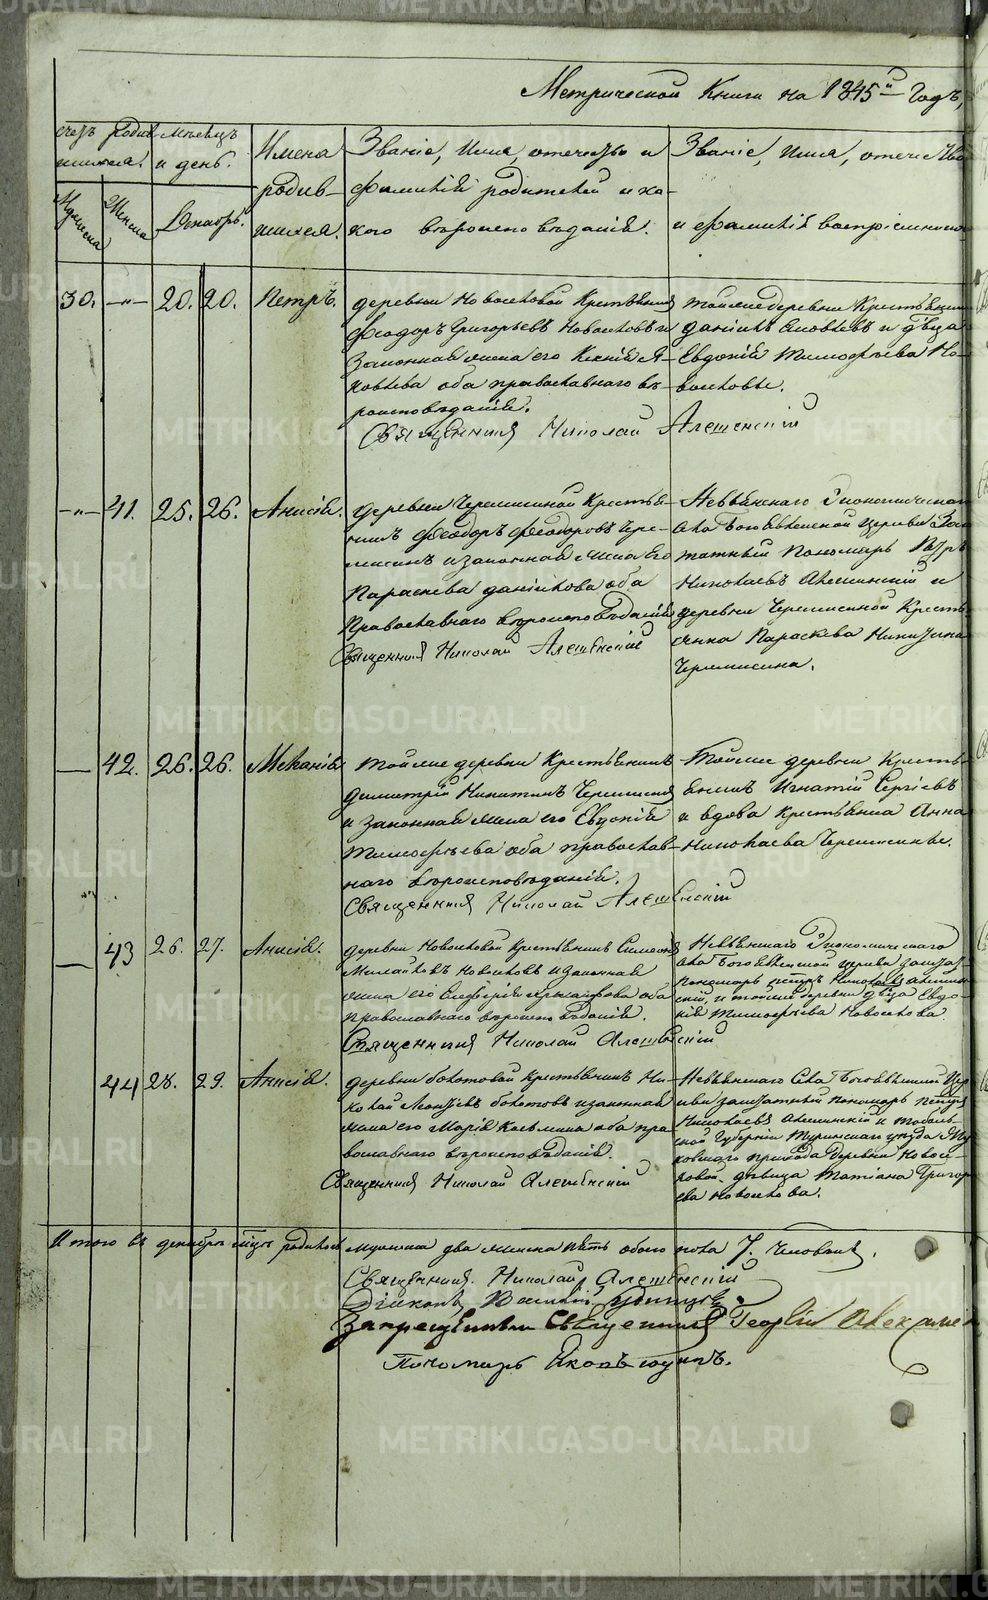 Метрической Книги на 1845й Годъ,
счетъ родив-
шихся.
Мѣсяцъ
и день.
Мужеска
Женска
Декабрь.
Имена
родив-
шихся.
Званіе, Имя, отечество и
Фамилій родителей и ка-
кого вѣроисповѣданій.
Званіе, Имя, отечество
и Фамилій воспріемников
30. -"- 20. 20. Петръ.
деревни Новоселовой Крестьянинъ
Феодоръ Григорьевъ Новоселовъ и
Законная жена его Ксенія Я-
ковлева оба православнаго вѣ-
роисповѣданія.
Священникъ Николай Алешенскій
тойже деревни Крестьянинъ
Даніилъ Яковлевъ и дѣвца
Евдокія Тимофѣева Но-
воселовы.
-"- 41. 25. 26. Анисія.
деревни Черемисиной Крестья-
нинъ Феодоръ Феодоровъ Чере-
мисинъ и законная жена его
Параскева Даніилова оба
Православнаго вѣроисповѣданій
Священникъ Николай Алешенскій
Невьянскаго Экономическаго
села Богоявленской церкви Заш-
татный Пономарь Петръ
Николаевъ Алешинскій и
деревни Черемисиной Кресть-
янка Параскева Никитина
Черемисина.
— 42. 26. 26. Меланія
Тойже деревни Крестьянинъ
Димитрій Никитинъ Черемисинъ
и законная жена его Евдокія
Тимофѣева оба православ-
наго вѣроисповѣданія.
Священникъ Николай Алешенскій
Тойже деревни Кресть-
янинъ Игнатій Сергіевъ
и вдова крестьянка Анна
Николаева Черемисины.
— 43 26. 27. Анисія.
деревни Новоселовой Крестьянинъ Симеонъ
Михайловъ Новоселовъ и законная
жена его оба
Православнаго вѣроисповѣданія.
Священникъ Николай Алешенскій
Невьянскаго Экономическаго
села Богоявленской церкви заштат-
пономарь Петръ Николаевъ Алешин-
скій, и тойже деревни дѣвца Евдо-
кія Тимофѣева Новоселова.
44 28. 29. Анисія.
деревни Болотовой Крестьянинъ Ни-
колай Леонтьевъ Болотовъ и законная
жена его Марія Козьмина оба пра-
вославнаго вѣроисповѣданія.
Священникъ Николай Алешенскій
Невьянскаго Села Богоявленской Цер-
кви заштатный Пономарь Петръ
Николаевъ Алешинскій и Тоболь-
ской Губерніи Туринскаго уезда
прихода деревни Новосе-
ловой. дѣвица Татіана Григорь-
ева Новоселова.
Итого въ декабрѣ мѣсяцѣ родилось мужеска два женска пять обоего пола 7. Человѣкъ.
Священникъ. Николай Алешенскій
Діаконъ
Запрещенный Священникъ Георгій
Пономарь Яковъ